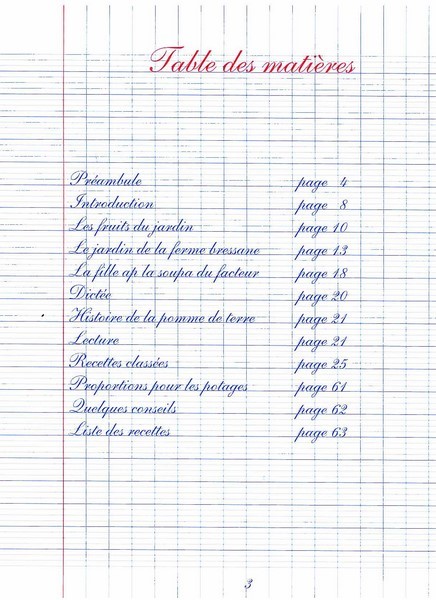 Table des matières
Préambule page 4
Introduction page 8
Les fruits du jardin page 10
Le jardin de la ferme bressane page 13
La fille ap la soupa du facteur page 18
Dictée page 20
Histoire de la pomme de terre page 21
Lecture page 21
Recettes classées page 25
Proportions pour les potages page 61
Quelques conseils page 62
Liste des recettes page 63
3